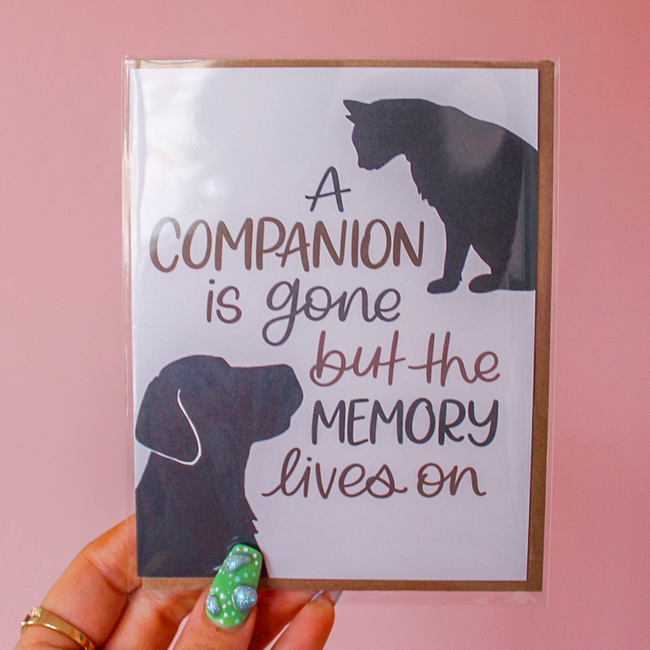 A
COMPANION
is gone
but the
MEMORY
lives on